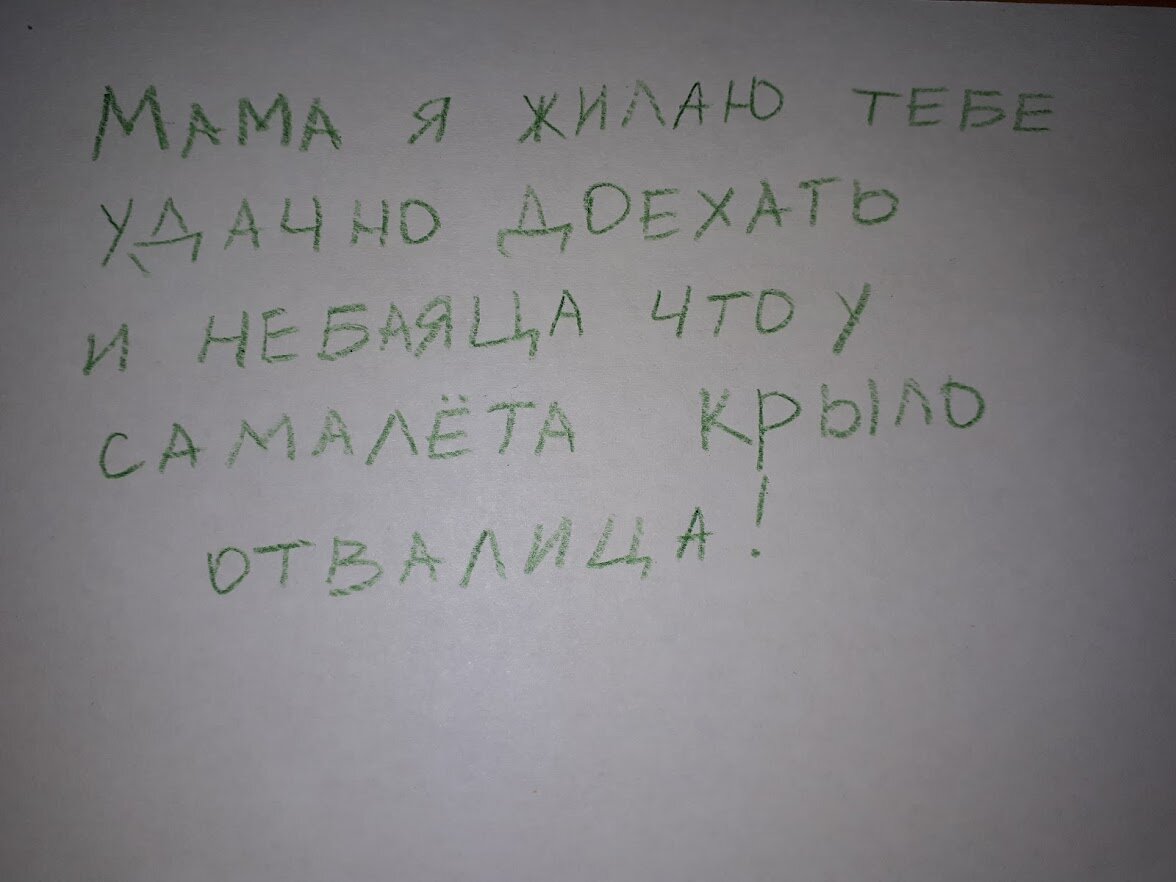 Мама я жилаю тебе
удачно доехать
и небаяца что у
самалёта крыло
отвалица!